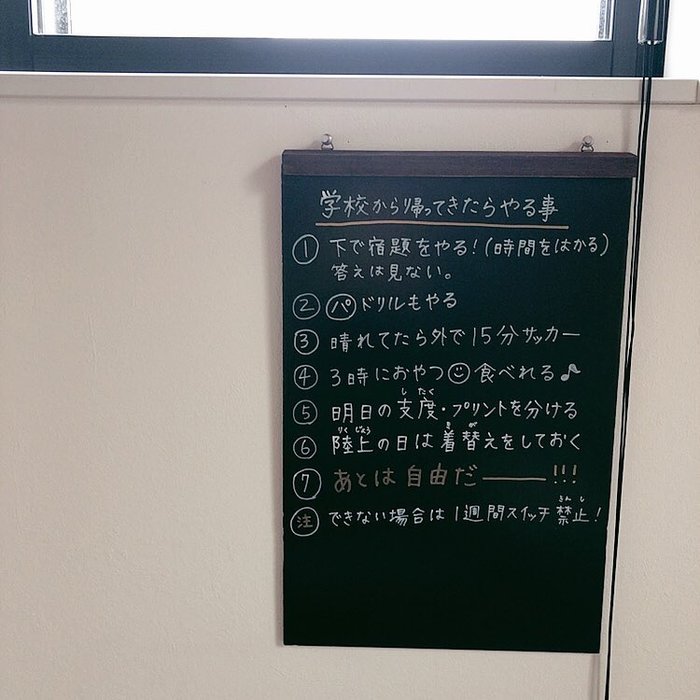 学校から帰ってきたらやる事
① 下で宿題をやる！(時間をはかる)
答えは見ない。
② パ ドリルもやる
③ 晴れてたら外で15分サッカー
④ 3時におやつ☺食べれる♪
したく
⑤ 明日の支度・プリントを分ける
りくじょう きが
⑥ 陸上の日は着替えをしておく
⑦ あとは自由だ――!!!
きんし
注 できない場合は1週間スイッチ禁止！